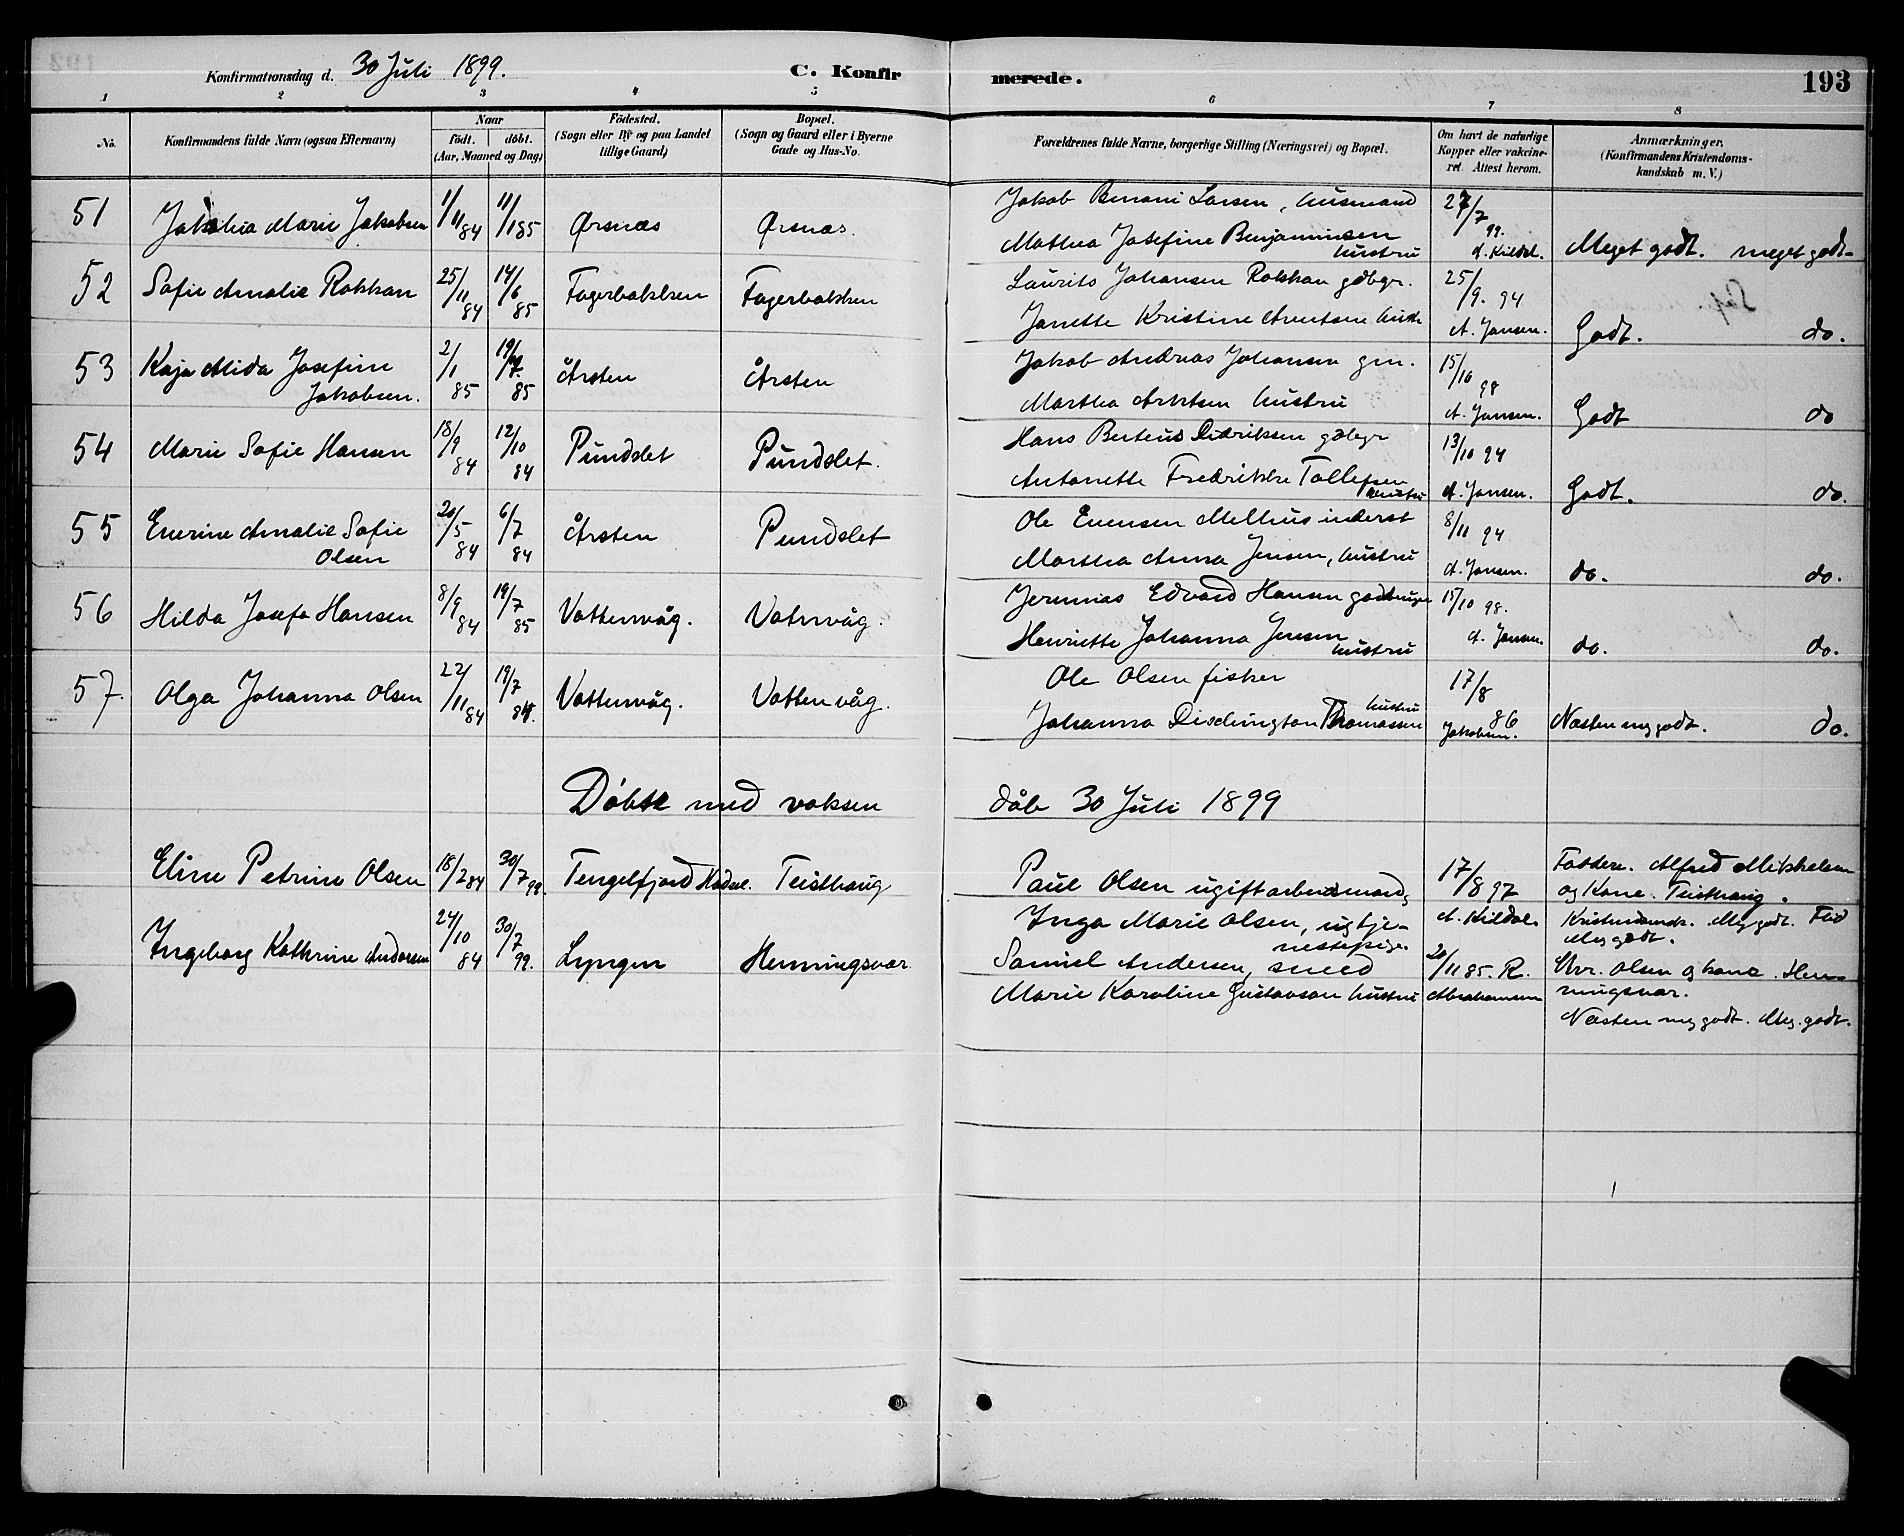 Konfirmationsdag d. 30 Juli 1899. C. Konfirmerede. 193
1 2 3 4 5 6 7 8
No.
Konfirmandens fulde Navn (ogsaa Efternavn)
Naar
født. døbt.
(Aar, Maaned og Dag)
Fødested.
(Sogn eller By og paa Landet
tillige Gaard)
Bopæl.
(Sogn og Gaard eller i Byerne
Gade og Hus-No.
Forældrenes fulde Navne, borgerlige Stilling (Næringsvei) og Bopæl.
Om havt de naturlige
Kopper eller vakcine-
ret. Attest herom.
Anmærkninger.
(Konfirmandens Kristendoms-
kundskab m. V.)
51 Marie Jakobsen 1/11 84 11/1 85 Ørsnæs Ørsnæs.
Jakob Benoni Larsen, husmand
Mathea Josefine Benjaminsen
hustru
27/7 99. A. Kildal. Meget godt. meget godt.
52 Sofie Amalie Rokkan 25/11 84 14/6 85 Fagerbakken Fagerbakken
Laurits Johansen Rokkan gdbgr.
Janette Kristine Arntsen hustr
25/9. 94 A. Jansen. Godt. do.
53 Kaja Alida Josefine
Jakobsen. 2/1 85 19/7. 85 Årsten Årsten
Jakob Andreas Johansen gm.
Martha Arntsen hustru
15/10 98 A. Jansen. Godt do
54 Marie Sofie Hansen 18/9 84 12/10 84 Pundslet Pundslet.
Hans Berteus Didriksen gdbgr
Antonette Fredrikke Tollefsen
hustru
13/10 94 A. Jansen. Godt. do.
55 Enerine Amalie Sofie
Olsen 20/5 84 6/7 84 Årsten Pundslet
Ole Evensen Melhus inderst
Martha Anna Jensen, hustru
8/11 94 A. Jansen. do. do.
56 Hilda Josefa Hansen 8/9 84 19/7 85 Vattervåg. Vatervåg.
Jeremias Edvard Hansen
Henriette Johanna Jensen
hustru
15/10 98. A. Jansen. do. do.
57. Olga Johanna Olsen 22/11 84 19/7 Vattervåg. Vattervåg.
Ole Olsen fisker
hustru
Johanna Dischington Thomassen
17/8 86 Jakobsen. Næsten meg godt. do.
Døbte med voksen dåb 30 Juli 1899
Eline Petrine Olsen 18/2 84 30/7 99. Tengelfjord Hadsel. Teisthaug
Paul Olsen ugift arbeidsmand,
Inga Marie Olsen, ug tje-
nestepige.
17/8 97 A. Kildal.
Faddere. Alfred Mikkelsen
og Kone. Teisthaug.
Kristendomsk. Meg godt. Flid
Meg godt.
Ingeborg Kathrine Andersen 24/10 84 30/7 99. Lyngen Henningsvær.
Samuel Andersen, smed
Marie Karoline Gustavsen hustru
20/11 85. R. Abrahamsen
Chr. Olsen og kone. Hen-
ningsvær.
Næsten meg godt. Meg. godt.